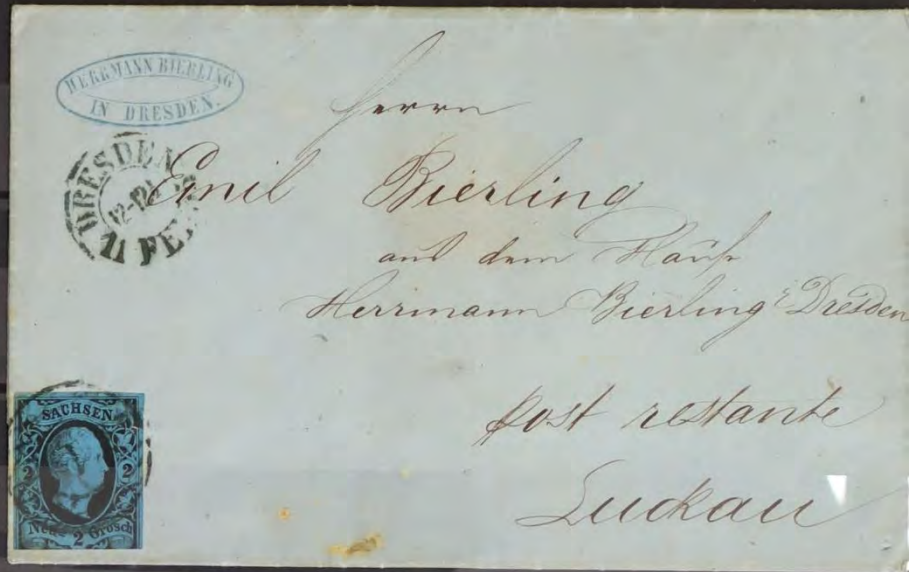 HERRMANN BIERLING
IN DRESDEN.
DRESDEN
11 FEB
Herrn
Emil Bierling
aus dem Hause
Herrmann Bierling Dresden
post restante
Luckau
SACHSEN
2 2
Neue 2 Grosch